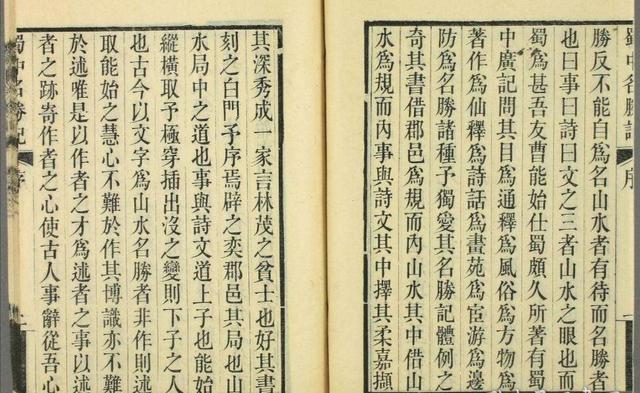 蜀中名勝記 序
勝反不能自爲名山水者有待而名勝者
也曰事曰詩曰文之三者山水之眼也而
蜀爲甚吾友曹能始仕蜀頗久所著有蜀
中廣記問其目爲通釋爲風俗爲方物爲
著作爲仙釋爲詩話爲畫苑爲宦游爲邊
防爲名勝諸種予獨愛其名勝記體例之
奇其書借郡邑爲規而內山水其中借山
水爲規而內事與詩文其中擇其柔嘉擷
其深秀成一家言林茂之貧士也好其書
刻之白門予序焉辟之奕郡邑其局也山
水局中之道也事與詩文道上子也能始
縱橫取予極穿插出沒之變則下子之人
也古今以文字爲山水名勝者非作則述
取能始之慧心不難於作其博識亦不難
於述唯是以作者之才爲述者之事以述
者之跡寄作者之心使古人事辭從吾心
蜀中名勝記 序